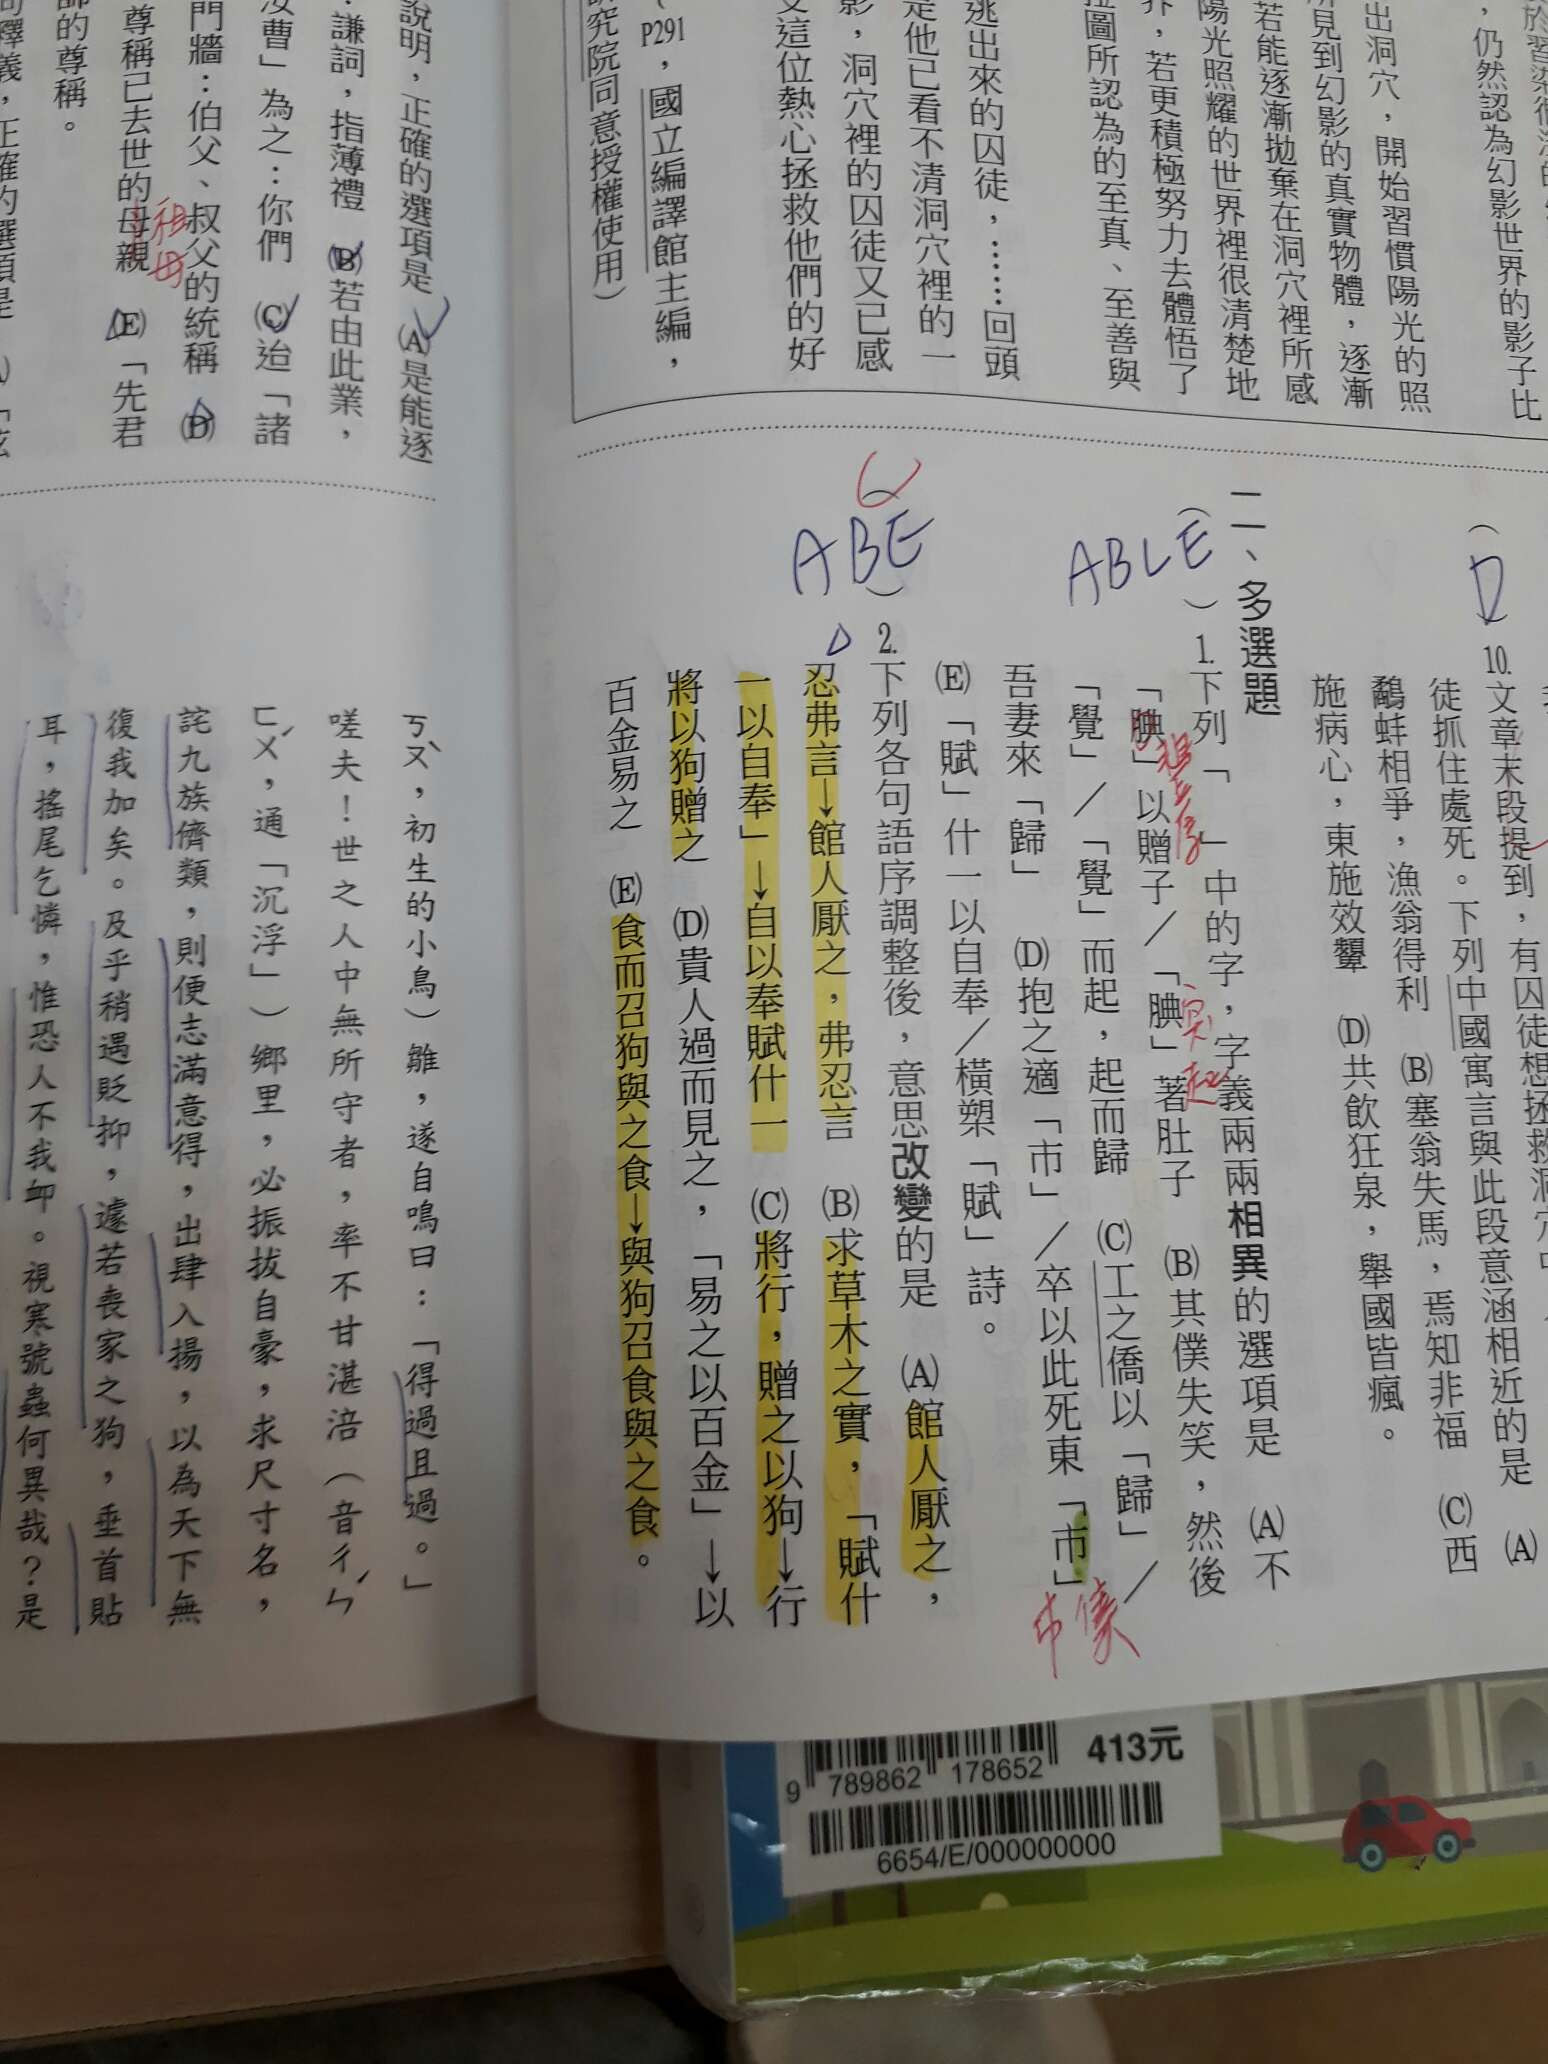 於習染
,仍然認為幻影世界的影子比
出洞穴,開始習慣陽光的照
所見到幻影的真實物體,逐漸
若能逐漸拋棄在洞穴裡所感
陽光照耀的世界裡很清楚地
界,若更積極努力去體悟了
拉圖所認為的至真、至善與
逃出來的囚徒,……回頭
是他已看不清洞穴裡的一
影,洞穴裡的囚徒又已感
這位熱心拯救他們的好
P291,國立編譯館主編,
研究院同意授權使用)
D
10.文章末段提到,有囚徒想拯救洞穴中
徒抓住處死。下列中國寓言與此段意涵相近的是 (A)
鷸蚌相爭,漁翁得利 (B)塞翁失馬,焉知非福 (C)西
施病心,東施效顰 (D)共飲狂泉,舉國皆瘋。
二、多選題
( )1.下列「 」中的字,字義兩兩相異的選項是 (A)不
ABCE
「腆」以贈子/「腆」著肚子 (B)其僕失笑,然後
突起
「覺」/「覺」而起,起而歸 (C)工之僑以「歸」/
吾妻來「歸」 (D)抱之適「市」/卒以此死東「市」
市儈
(E)「賦」什一以自奉/橫槊「賦」詩。
ABE
C
)2.下列各句語序調整後,意思改變的是 (A)館人厭之,
忍弗言→館人厭之,弗忍言 (B)求草木之實,「賦什
一以自奉」→自以奉賦什一 (C)將行,贈之以狗→行
將以狗贈之 (D)貴人過而見之,「易之以百金」→以
百金易之 (E)食而召狗與之食→與狗召食與之食。
說明,正確的選項是 (A)是能逐
:謙詞,指薄禮 (B)若由此業,
汝曹」為之:你們 (C)迨「諸
門牆:伯父、叔父的統稱 (D)
尊稱已去世的母親 (E)「先君
祖母
師的尊稱。
詞釋義,正確的選項是
ㄎㄡˋ,初生的小鳥)雛,遂自鳴曰:「得過且過。」
嗟夫!世之人中無所守者,率不甘湛涪(音ㄔㄣˊ
ㄈㄨˊ,通「沉浮」)鄉里,必振拔自豪,求尺寸名,
詫九族儕類,則便志滿意得,出肆入揚,以為天下無
復我加矣。及乎稍遇貶抑,遽若喪家之狗,垂首貼
耳,搖尾乞憐,惟恐人不我卹。視寒號蟲何異哉?是
413元
9 789862 178652
6654/E/000000000